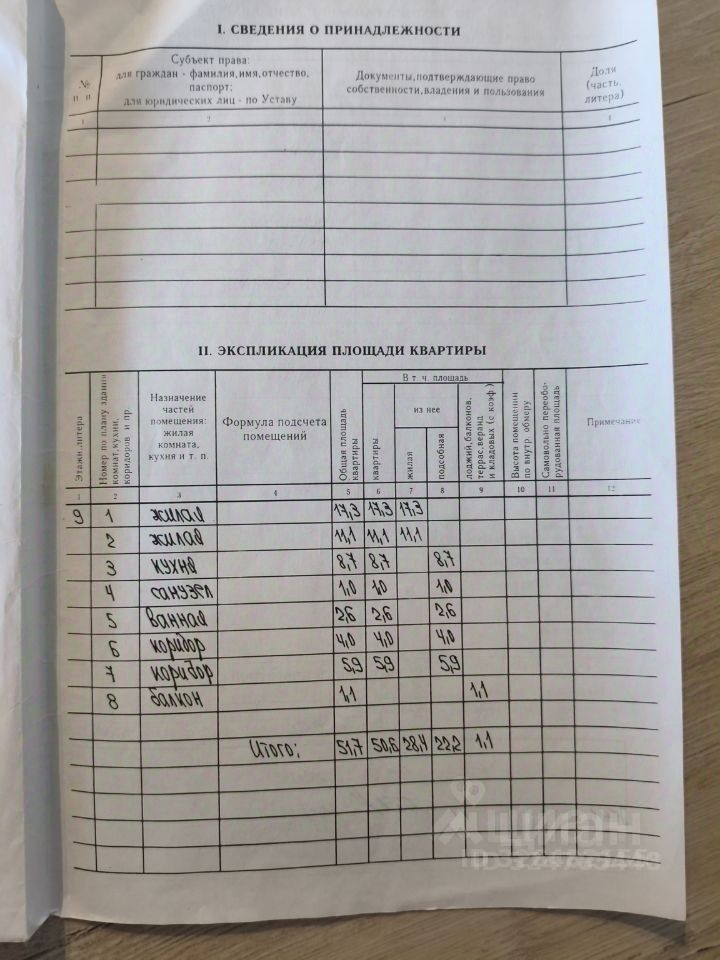 I. СВЕДЕНИЯ О ПРИНАДЛЕЖНОСТИ
№ п п
Субъект права:
для граждан - фамилия,имя,отчество,
паспорт;
для юридических лиц - по Уставу
Документы,подтверждающие право
собственности,владения и пользования
Доли
(часть,
литера)
1 2 3 4
II. ЭКСПЛИКАЦИЯ ПЛОЩАДИ КВАРТИРЫ
Этажи,литера
Номер по плану здания
комнат,кухни,
коридоров и пр.
Назначение
частей
помещения:
жилая
комната,
кухня и т. п.
Формула подсчета
помещений
Общая площадь
квартиры
В т. ч. площадь
квартиры
из нее
жилая
подсобная
лоджий,балконов,
террас,веранд
и кладовых (с коэф.)
Высота помещении
по внутр. обмеру
Самовольно переобо-
рудованная площадь
Примечание
1 2 3 4 5 6 7 8 9 10 11 12
9 1 жилая 17,3 17,3 17,3
2 жилая 11,1 11,1 11,1
3 кухня 8,7 8,7 8,7
4 санузел 1,0 1,0 1,0
5 ванная 2,6 2,6 2,6
6 коридор 4,0 4,0 4,0
7 коридор 5,9 5,9 5,9
8 балкон 1,1 1,1
Итого: 51,7 50,6 28,4 22,2 1,1
циан